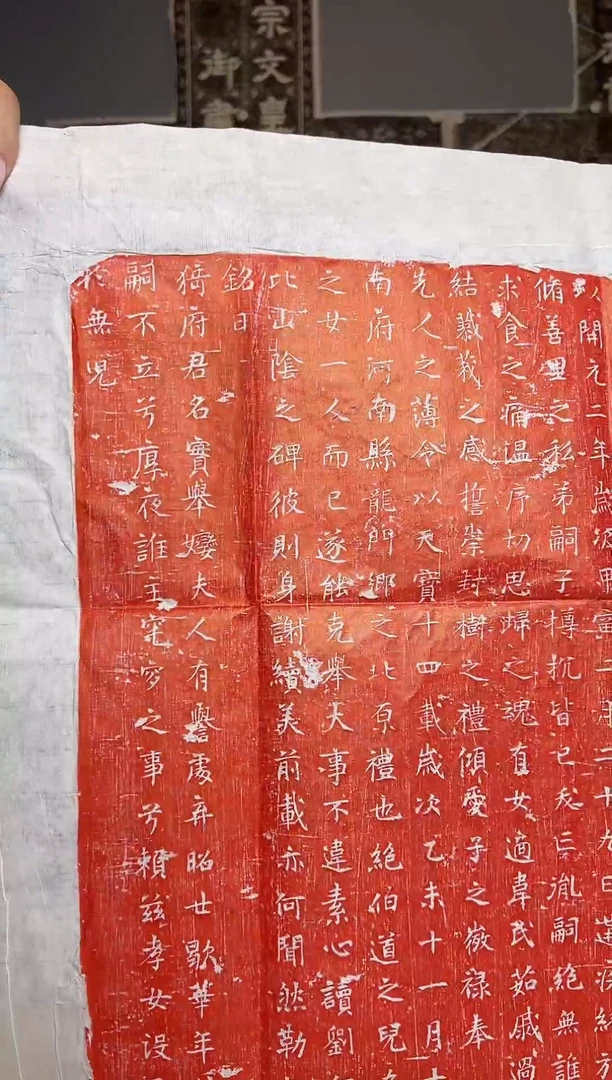 以開元二年歲次甲寅一月二十九日
脩善里之私弟嗣子摶抗皆已夭亡胤嗣絕無誰
求食之痛溫序切思歸之魂有女適韋氏茹戚過
結蓼莪之感誓崇封樹之禮傾愛子之嶶祿奉
先人之薄令以天寶十四載歲次乙未十一月
南府河南縣龍門鄉之北原禮也絕伯道之兒
之女一人而已遂能克舉大事不違素心讀劉
此山陰之碑彼則身謝續美前載亦何聞然勒
銘曰
猗府君名實舉孌夫人有譽處弃昭世歇華年
嗣不立兮厚夜誰主窀穸之事兮賴茲孝女沒
於無兒
宗文皇
御書